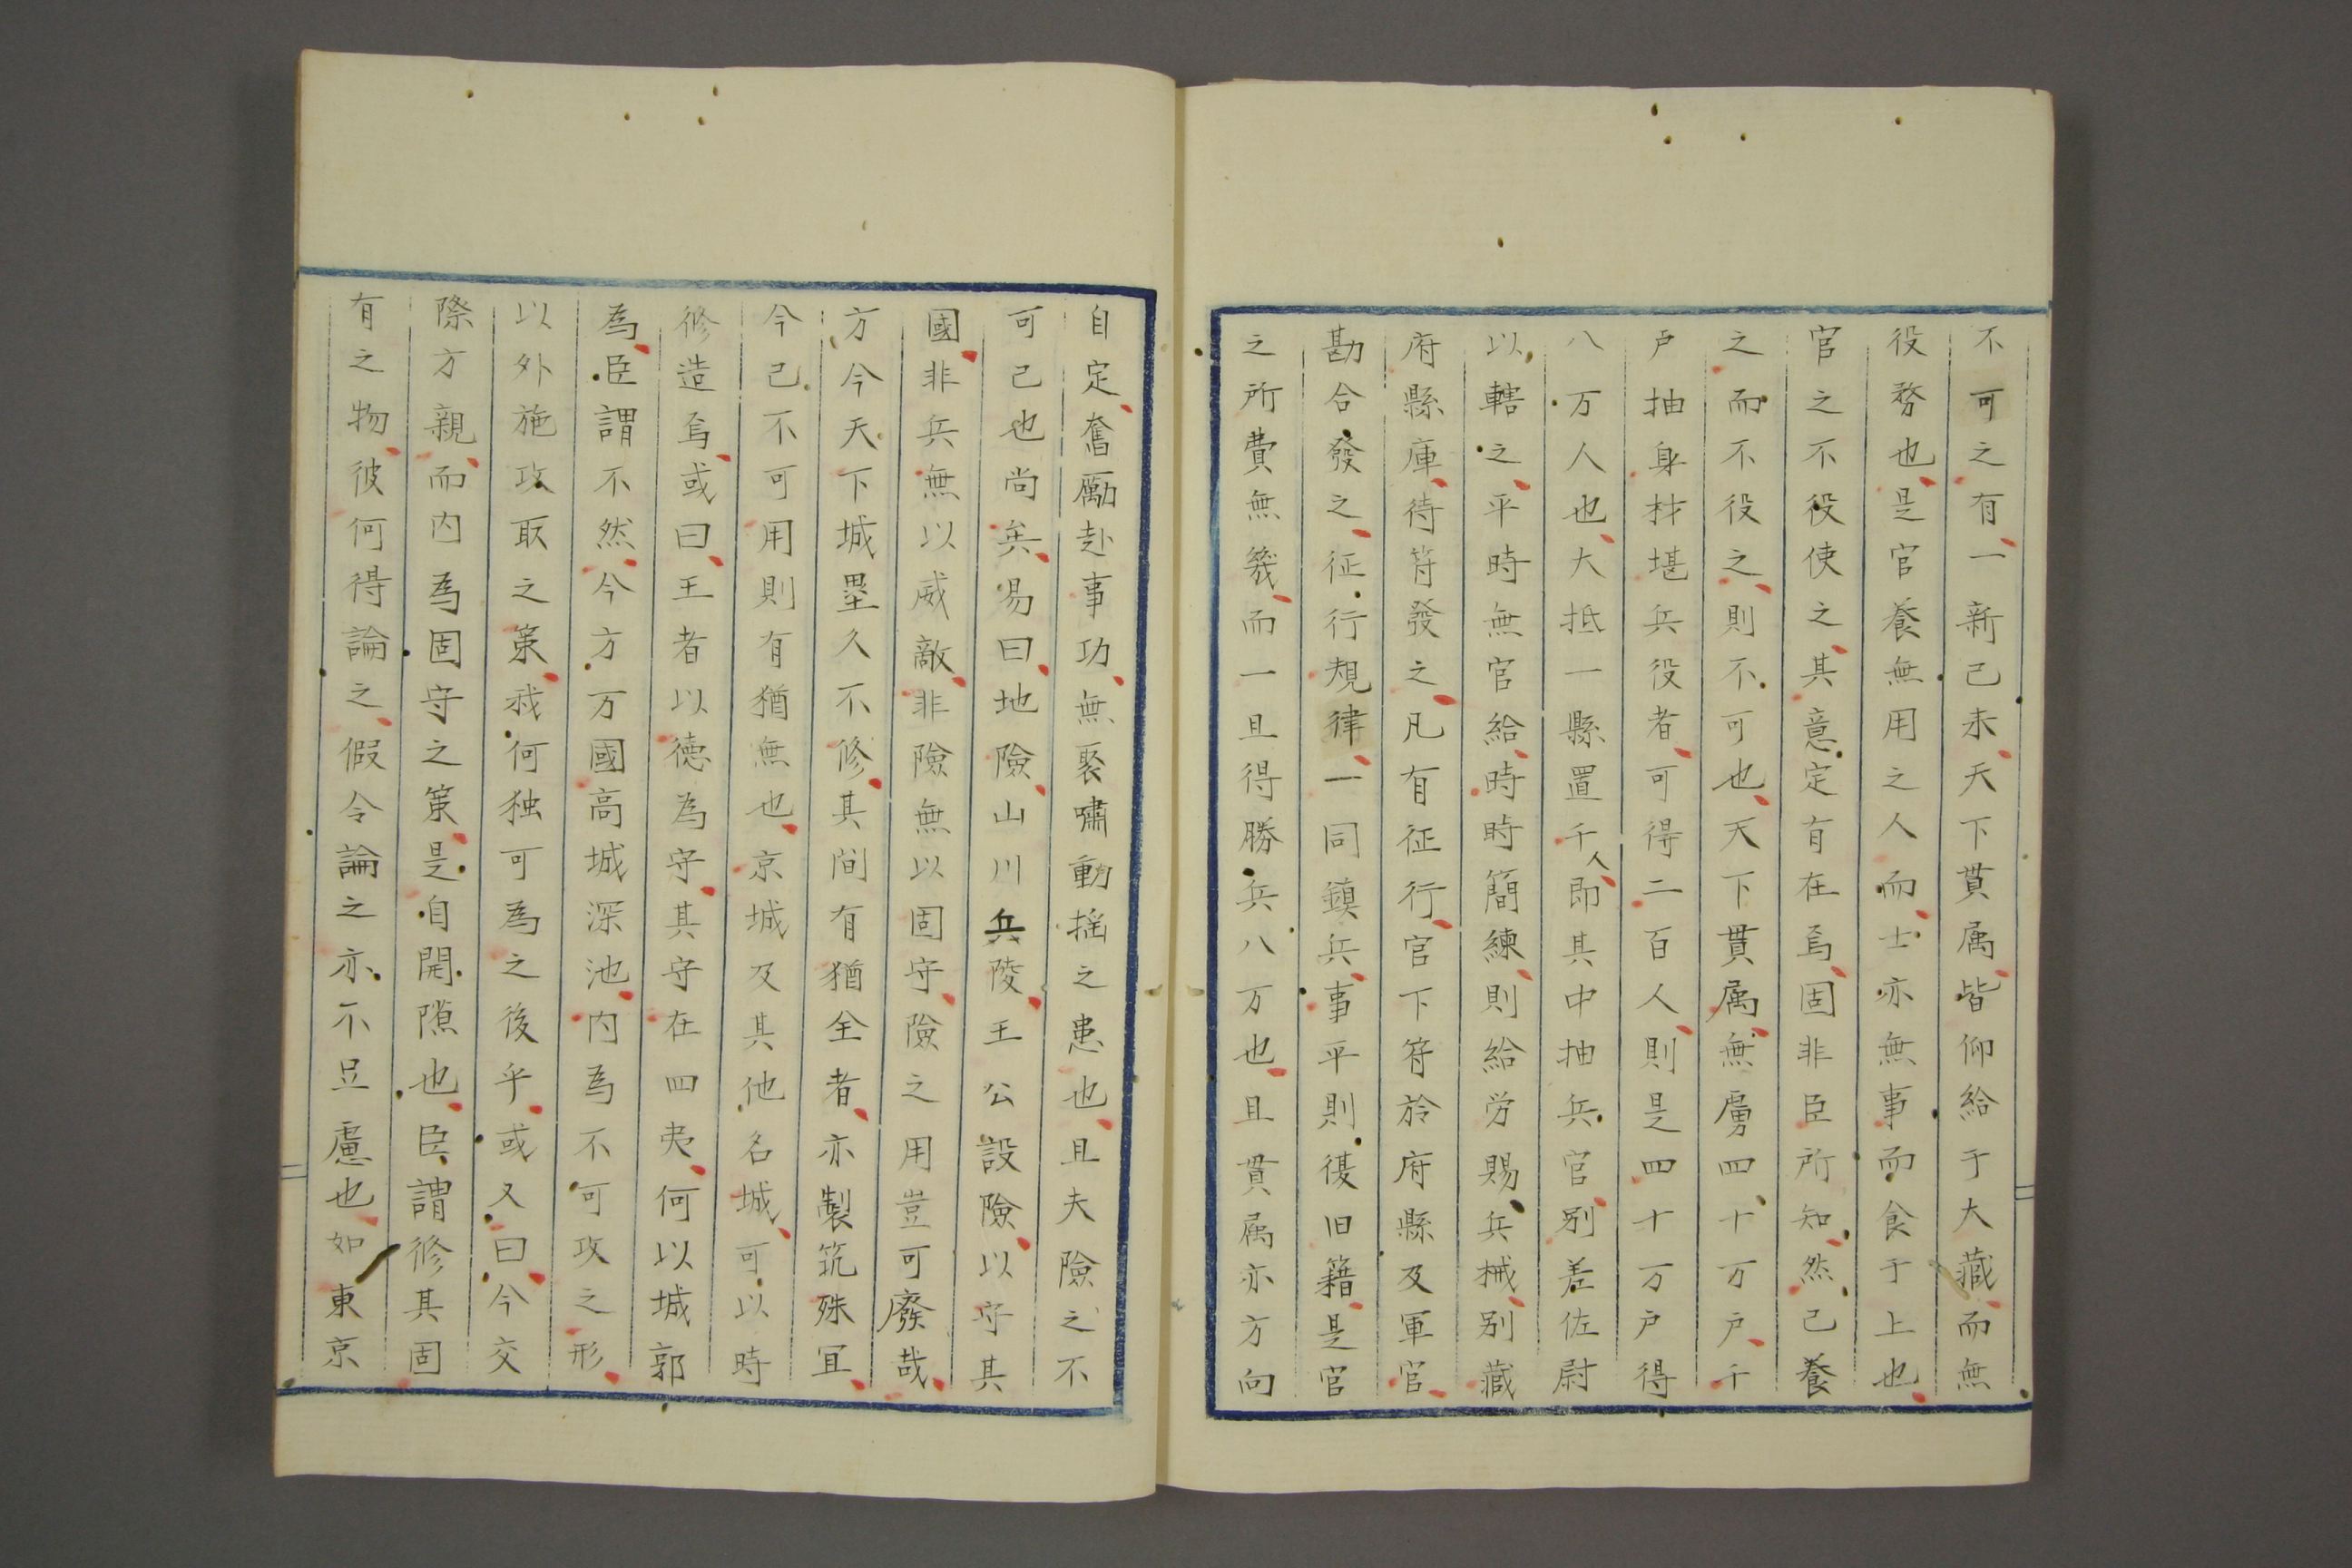 不可之有一新己未天下貫属皆仰給于大藏而無
役務也是官養無用之人而士亦無事而食于上也
官之不役使之其意定有在焉固非臣所知然己養
之而不役之則不可也天下貫属無慮四十万户千
户抽身材堪兵役者可得二百人則是四十万户得
八万人也大抵一縣置千人即其中抽兵官別差佐尉
以轄之平時無官給時時簡練則給労賜兵械別藏
府縣庫待符發之凡有征行官下符於府縣及軍官
勘合發之征行規律一同鎮兵事平則復旧籍是官
之所費無幾而一旦得勝兵八万也且貫属亦方向
自定奮勵赴事功無聚嘯動揺之患也且夫險之不
可己也尚矣易曰地險山川兵陵王公設險以守其
國非兵無以威敵非險無以固守險之用豈可廢哉
方今天下城塁久不修其間有猶全者亦製筑殊宜
今己不可用則有猶無也京城及其他名城可以時
修造焉或曰王者以徳為守其守在四夷何以城郭
為臣謂不然今方万國高城深池内為不可攻之形
以外施攻取之策我何独可為之後乎或又曰今交
際方親而内為固守之策是自開隙也臣謂修其固
有之物彼何得論之假令論之亦不足慮也如東京